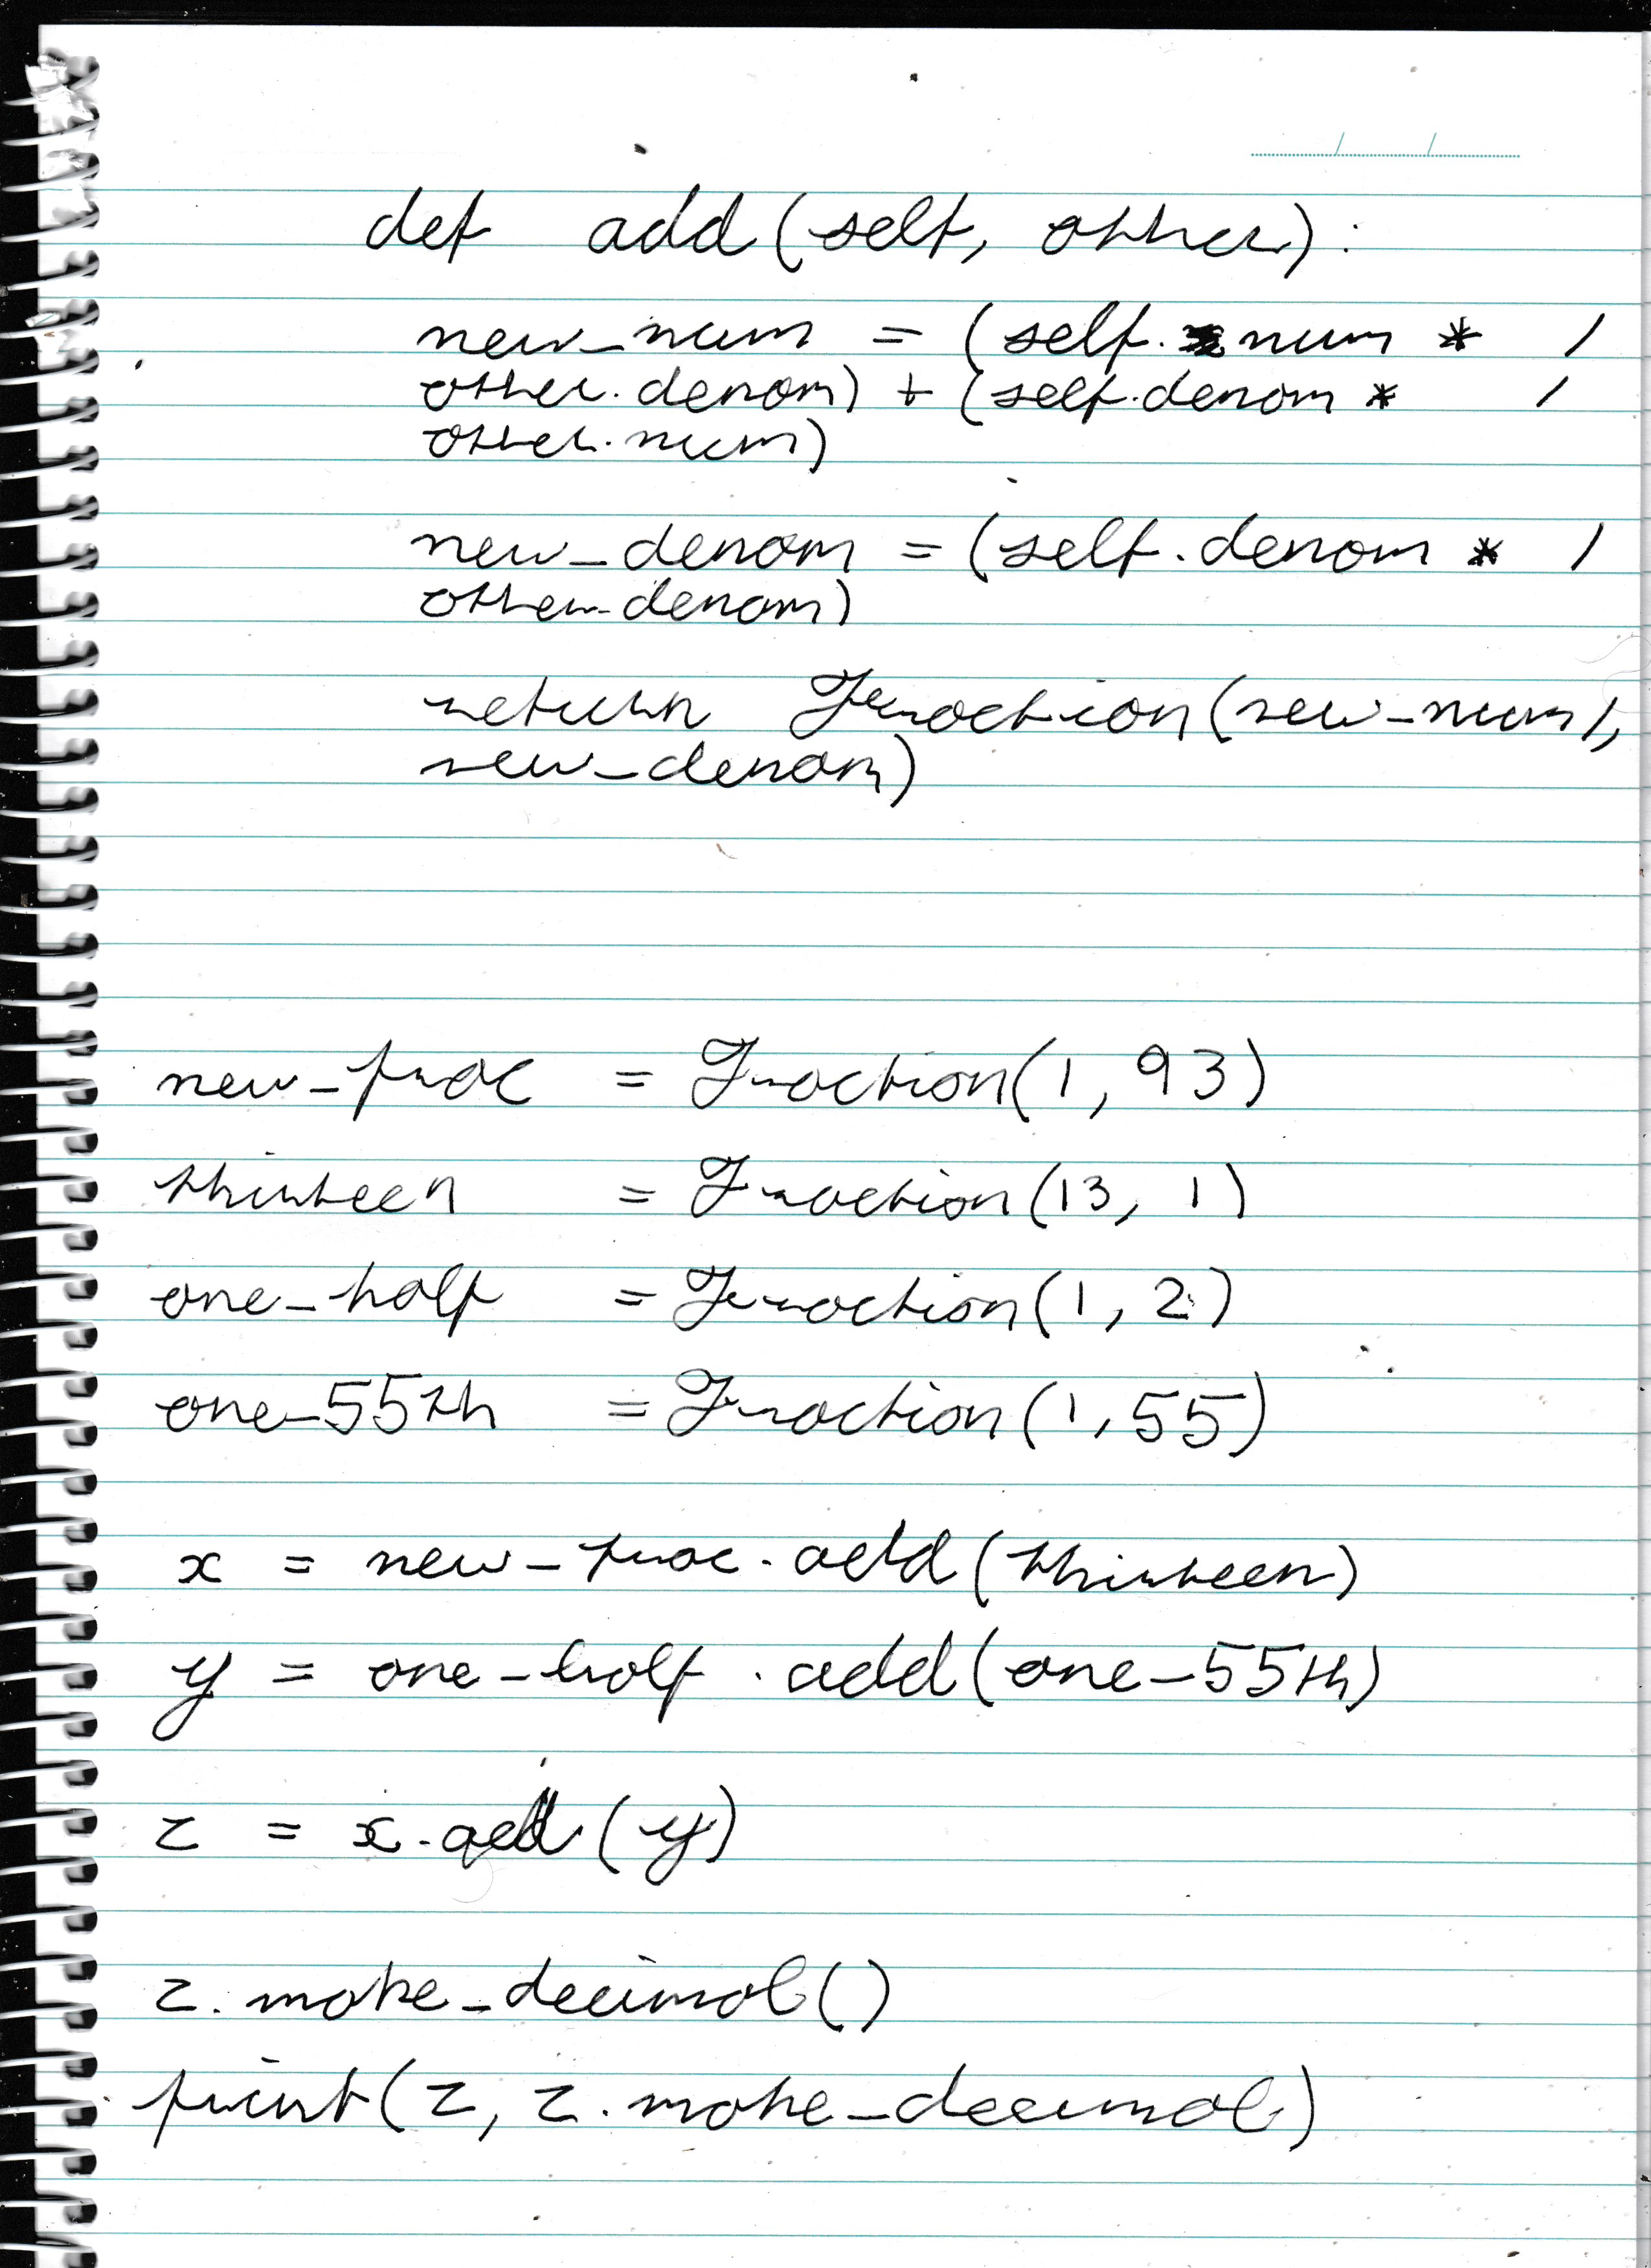 def add(self, other):
new_num = (self.num * /
other.denom) + (self.denom * /
other.num)
new_denom = (self.denom * /
other.denom)
return Fraction(new_num,
new_denom)
new_frac = Fraction(1, 93)
thirteen = Fraction(13, 1)
one_half = Fraction(1, 2)
one_55th = Fraction(1, 55)
x = new_frac.add(thirteen)
y = one_half.add(one_55th)
z = x.add(y)
z.make_decimal()
print(z, z.make_decimal)